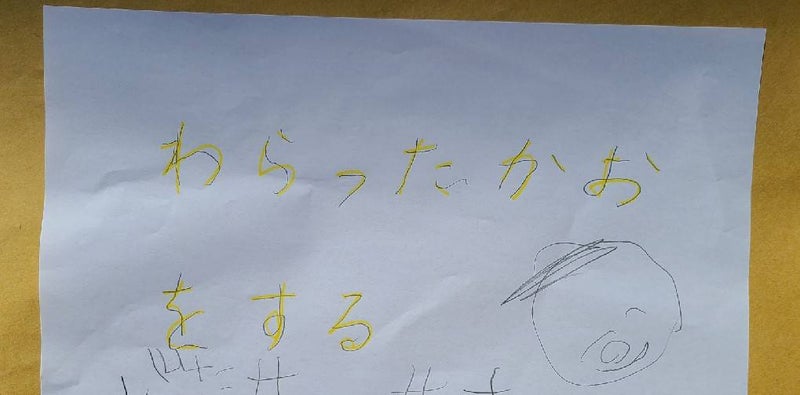 わらったかお
をする